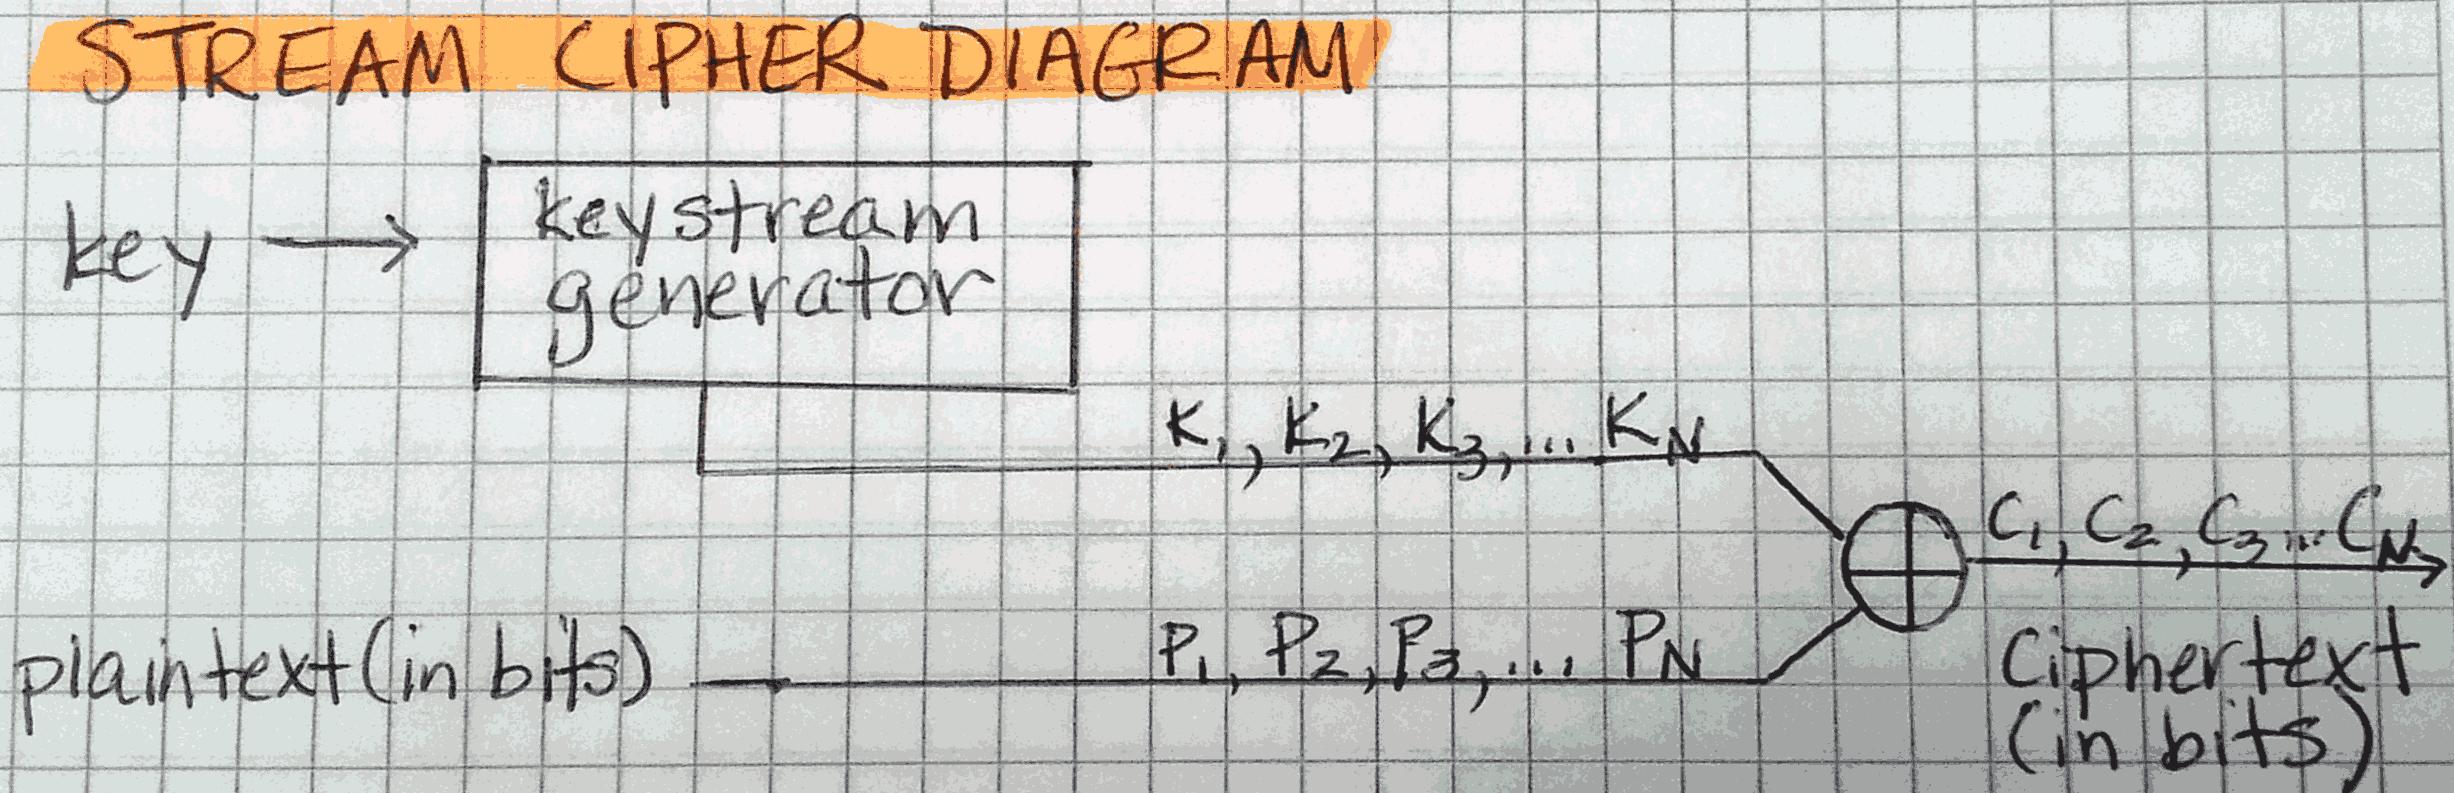 STREAM CIPHER DIAGRAM
key → keystream
generator
K₁, K₂, K₃, ... K_N
C₁, C₂, C₃ ... C_N
plaintext (in bits)
P₁, P₂, P₃, ... P_N
Ciphertext
(in bits)